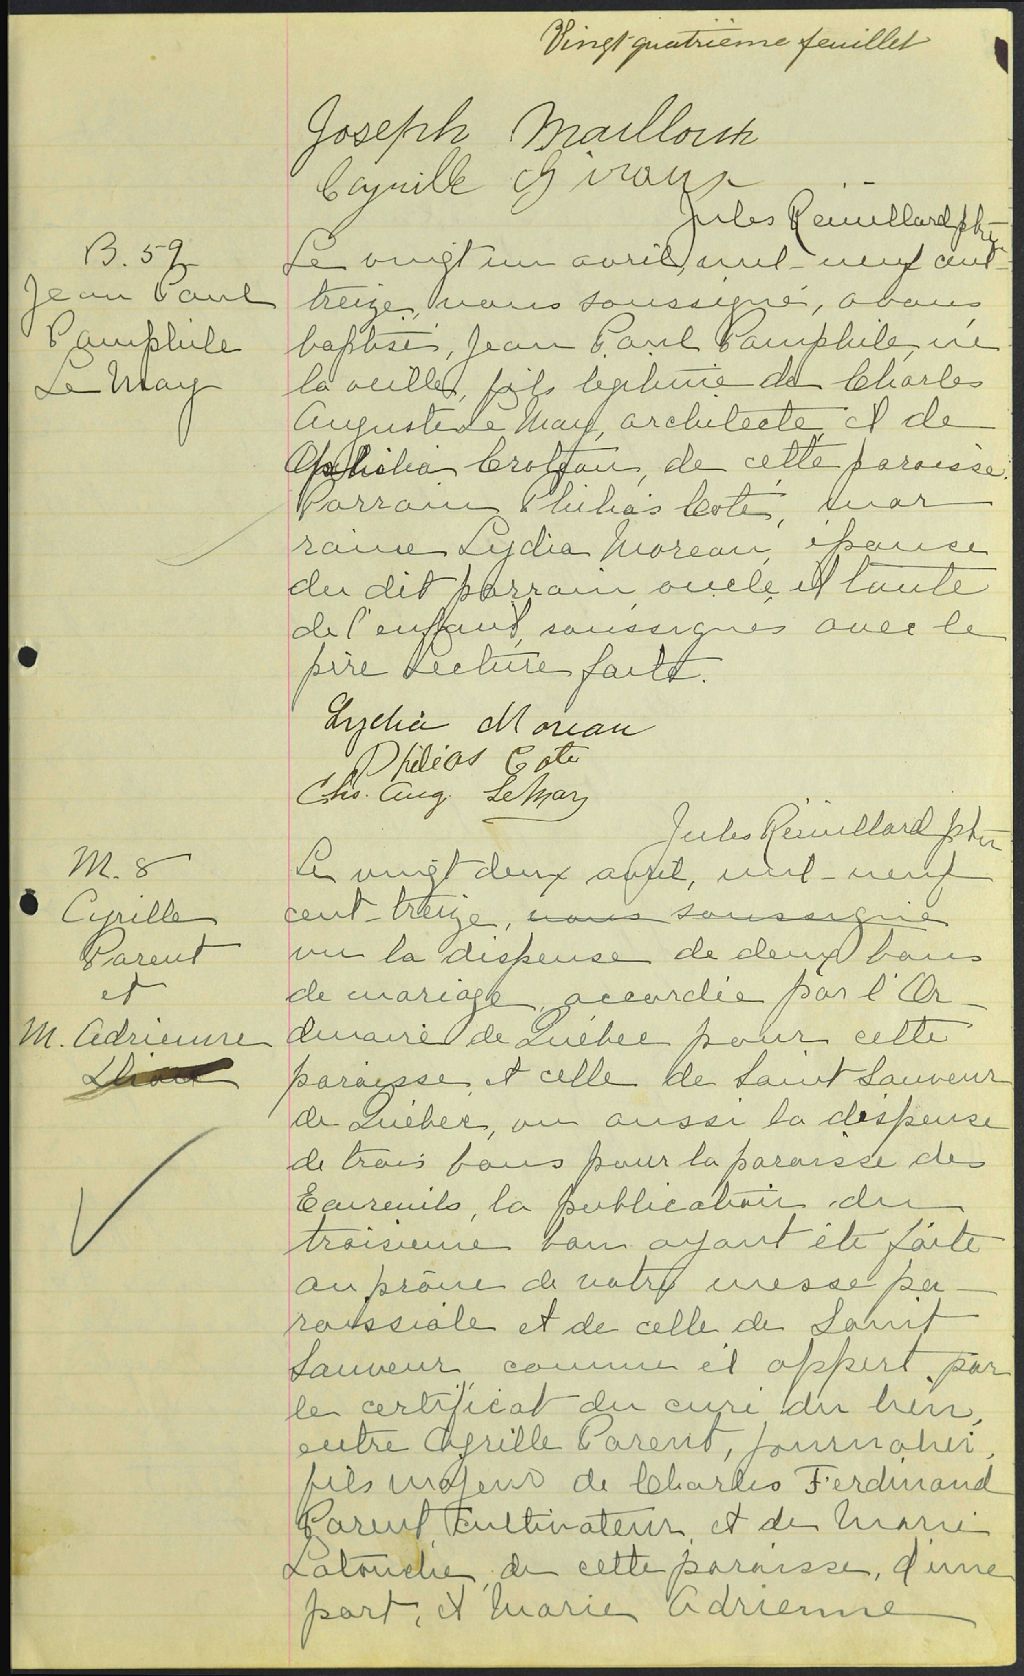 Vingt quatrième feuillet
Joseph Mailloux
Cyrille Giroux
Jules Rémillard ptre
B. 59
Jean Paul
Pamphile
Le May
Le vingt un avril, mil-neuf cent-
treize, nous soussigné, avons
baptisé, Jean Paul Pamphile, né
la veille, fils légitime de Charles
Auguste Le May, architecte, et de
de cette paroisse.
Parrain Philias Coté, mar
raine Lydia Moreau, épouse
du dit parrain, oncle et tante
de l'enfant, soussignés avec le
père Lecture faite.
Lydia Moreau
Philias Coté
Chs. Aug. LeMay
Jules Rémillard ptre
M. 8
Cyrille
Parent
et
M. Adrienne
Le vingt deux avril, mil-neuf
cent-treize, nous soussigné
vu la dispense de deux bans
de mariage, accordée par l'Or-
dinaire de Québec pour cette
paroisse et celle de Saint Sauveur
de Québec, vu aussi la dispense
de trois bans pour la paroisse des
Ecureuils, la publication du
troisième ban ayant été faite
au prône de notre messe pa-
roissiale et de celle de Saint
Sauveur, comme il appert par
le certificat du curé du lieu,
entre Cyrille Parent, journalier,
fils majeur de Charles Ferdinand
Parent, cultivateur, et de Marie
Latouche, de cette paroisse, d'une
part, et Marie Adrienne